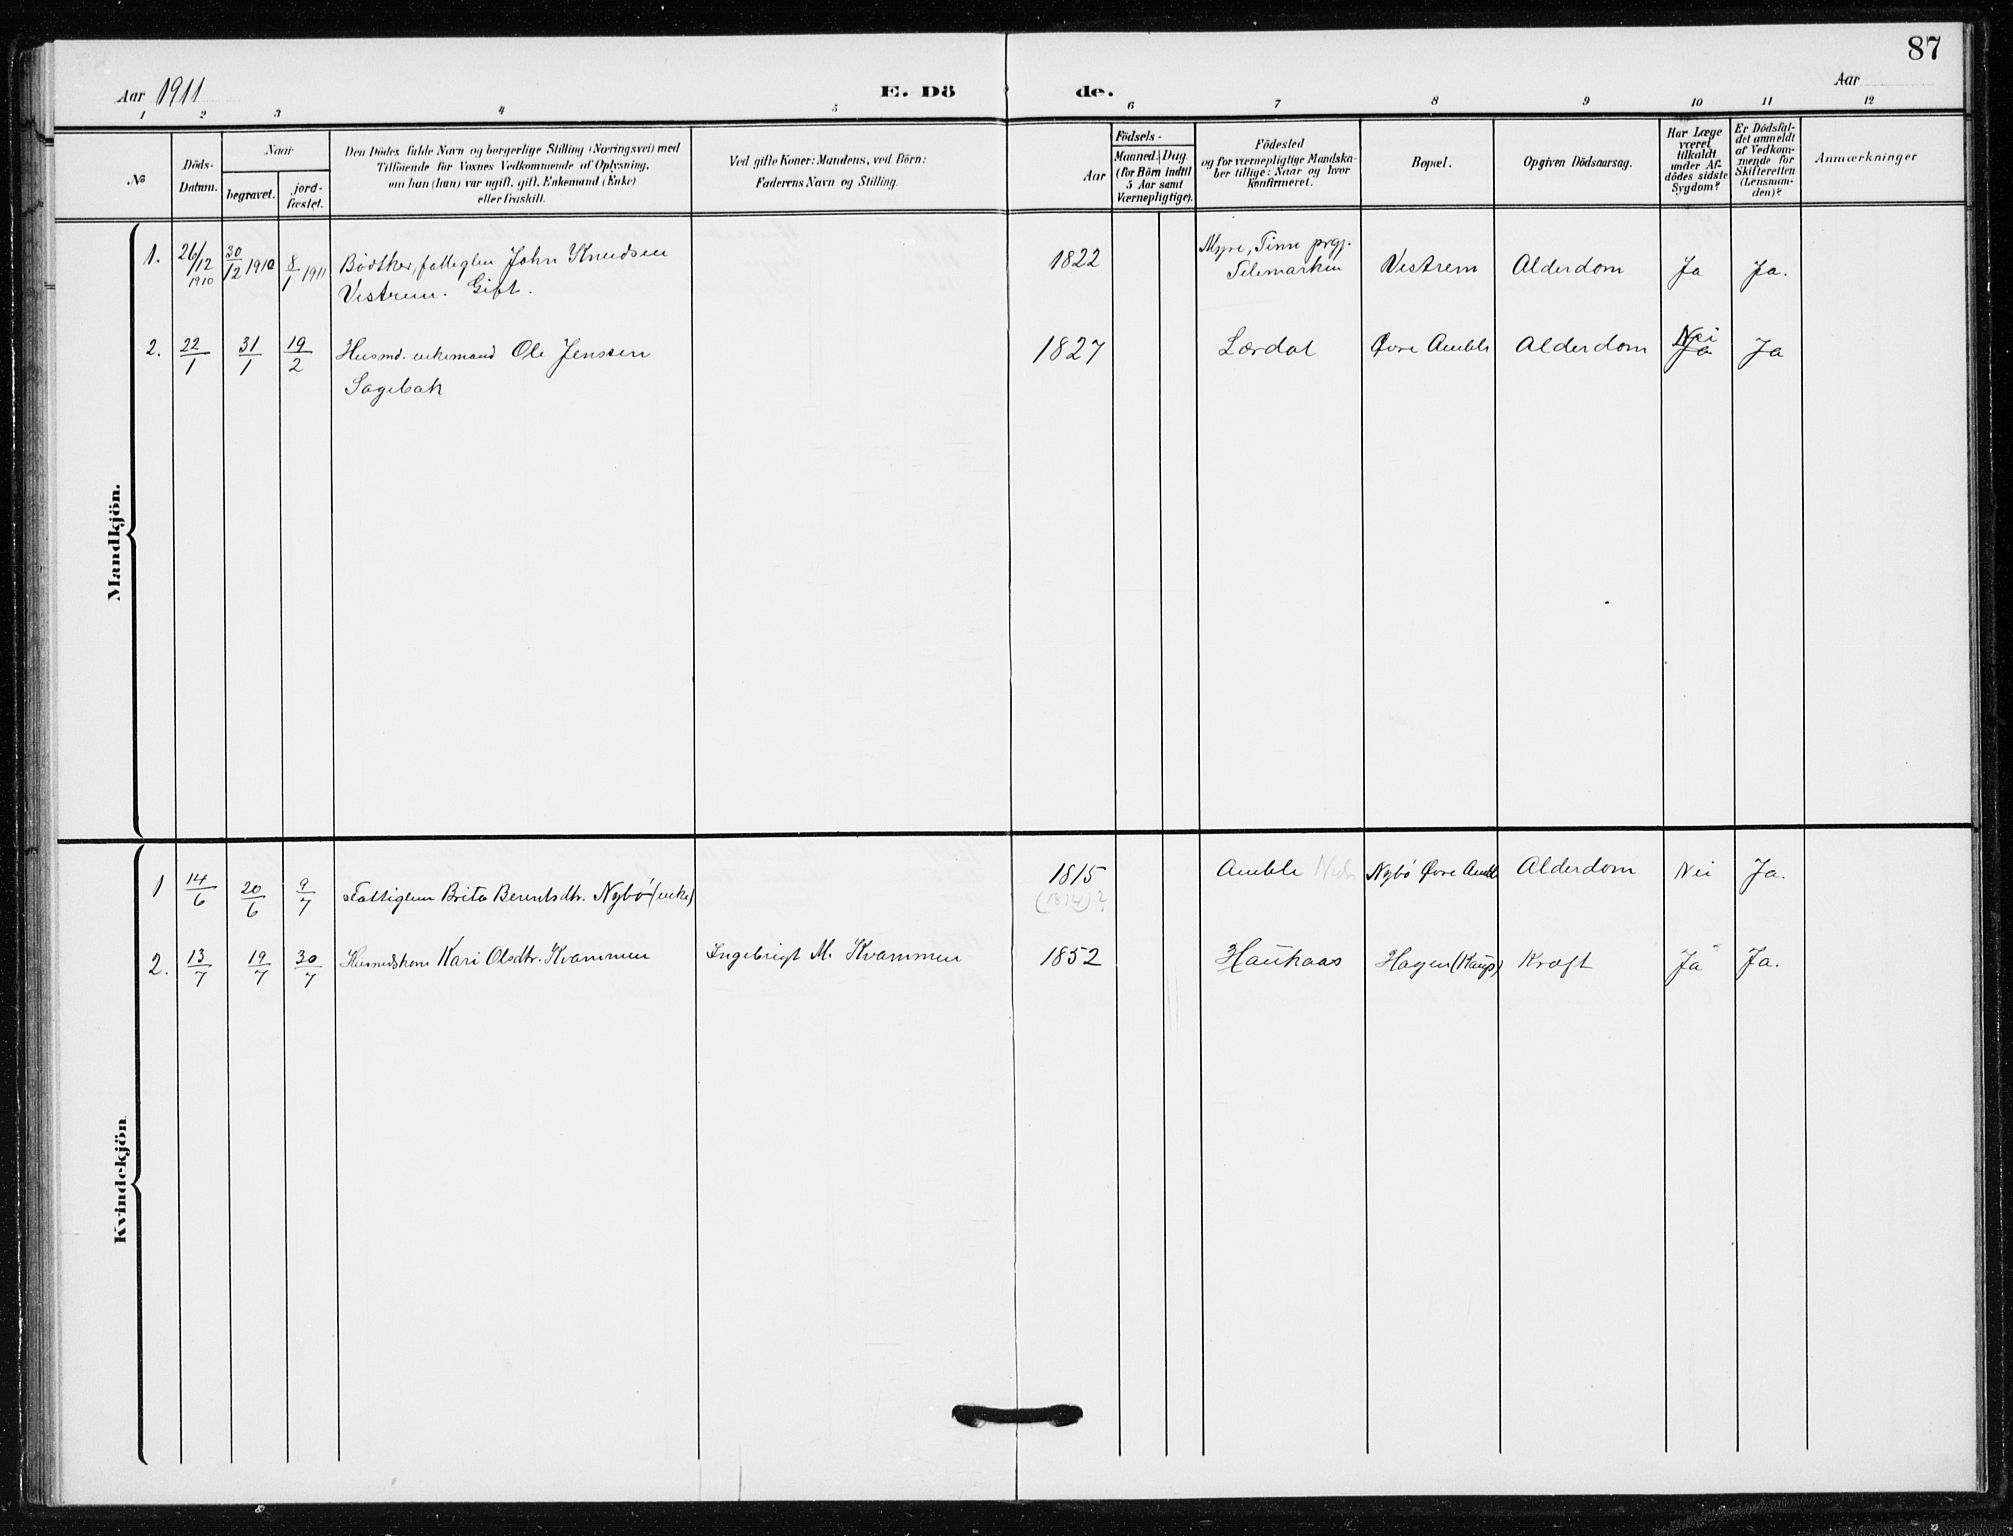 87
Aar 1911
E. Dö
de.
Aar
1 2 3 4 5 6 7 8 9 10 11 12
No
Döds-
Datum.
Naar
begravet.
jord-
fæstet.
Den Dödes fulde Navn og borgerlige Stilling (Næringsvei) med
Tilföiende for Voxnes Vedkommende af Oplysning,
om han (hun) var ugift, gift, Enkemand (Enke)
eller fraskilt.
Ved gifte Koner: Mandens, ved Börn:
Faderens Navn og Stilling.
Aar
Födsels-
Maaned. Dag.
(for Börn indtil
5 Aar samt
Værnepligtige).
Födested
og for værnepligtige Mandska-
ber tillige: Naar og hvor
konfirmeret.
Bopæl.
Opgiven Dödsaarsag.
Har Læge
været
tilkaldt
under Af-
dödes sidste
Sygdom?
Er Dödsfal-
det anmeldt
af Vedkom-
mende for
Skifteretten
(Lensman-
den)?
Anmærkninger
Mandkjön.
1. 26/12 1910 30/12 1910 8/1 1911 Bødtker, fattiglem John Knudsen 1822 Myre, Tinn prgj. Vestrem Alderdom Ja Ja.
Vestrem. Gift. Telemarken
2. 22/1 31/1 19/2 Husmd. enkemand Ole Jenssen 1827 Lærdal Øvre Amble Alderdom Nei Ja Ja
Sagebak
Kvindekjön
1 14/6 20/6 9/7 Fattiglem Brita Berentsdtr. Nybø (enke) 1815 Amble Nybø Øvre Amble Alderdom Nei Ja.
(1814)?
2. 13/7 19/7 30/7 Husmdskone Kari Olsdtr. Kvammen Ingebrigt M. Kvammen 1852 Haukaas Hagen (Kaup) Kræft Ja Ja.